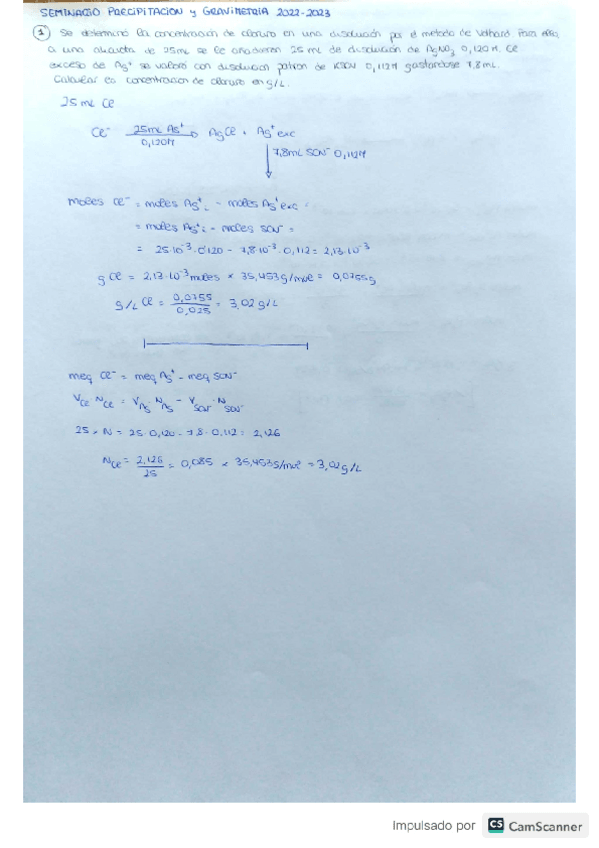 SEMINARIO PRECIPITACION y GRAVIMETRIA 2022-2023
1 Se determinó la concentración de cloruro en una disolución por el método de Volhard. Para ello,
a una alícuota de 25mL se le añadieron 25 mL de disolución de AgNO3 0,120 M. El
exceso de Ag+ se valoró con disolución patrón de KSCN 0,112M gastándose 7,8 mL.
Calcular la concentración de cloruro en g/L.
25 mL Cl
Cl- 25mL Ag+ 0,120M → AgCl + Ag+ exc
↓ 7,8mL SCN- 0,112M
moles Cl- = moles Ag+i - moles Ag+exc =
= moles Ag+i - moles SCN- =
= 25·10-3·0,120 - 7,8·10-3·0,112 = 2,13·10-3
g Cl = 2,13·10-3 moles × 35,453 g/mol = 0,0755g
g/L Cl = 0,0755 / 0,025 = 3,02 g/L
meq Cl- = meq Ag+ - meq SCN-
VCl NCl = VAg·NAg - VSCN·NSCN-
25 × N = 25·0,120 - 7,8·0,112 = 2,126
NCl = 2,126 / 25 = 0,085 × 35,453g/mol = 3,02 g/L
Impulsado por CS CamScanner